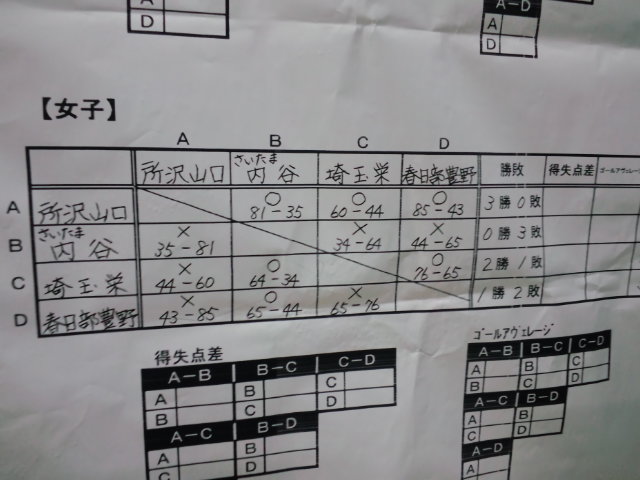 A
D
A-D
A
D
【女子】
A B C D
所沢山口 さいたま内谷 埼玉栄 春日部豊野 勝敗 得失点差 ゴールアヴェレージ
A 所沢山口 ○ 81-35 ○ 60-44 ○ 85-43 3勝0敗
B さいたま内谷 × 35-81 × 34-64 × 44-65 0勝3敗
C 埼玉栄 × 44-60 ○ 64-34 ○ 76-65 2勝1敗
D 春日部豊野 × 43-85 ○ 65-44 × 65-76 1勝2敗
得失点差
A-B B-C C-D
A B C
B C D
A-C B-D
A B
C D
ゴールアヴェレージ
A-B B-C C-D
A B C
B C D
A-C B-D
A B
C D
A-D
A